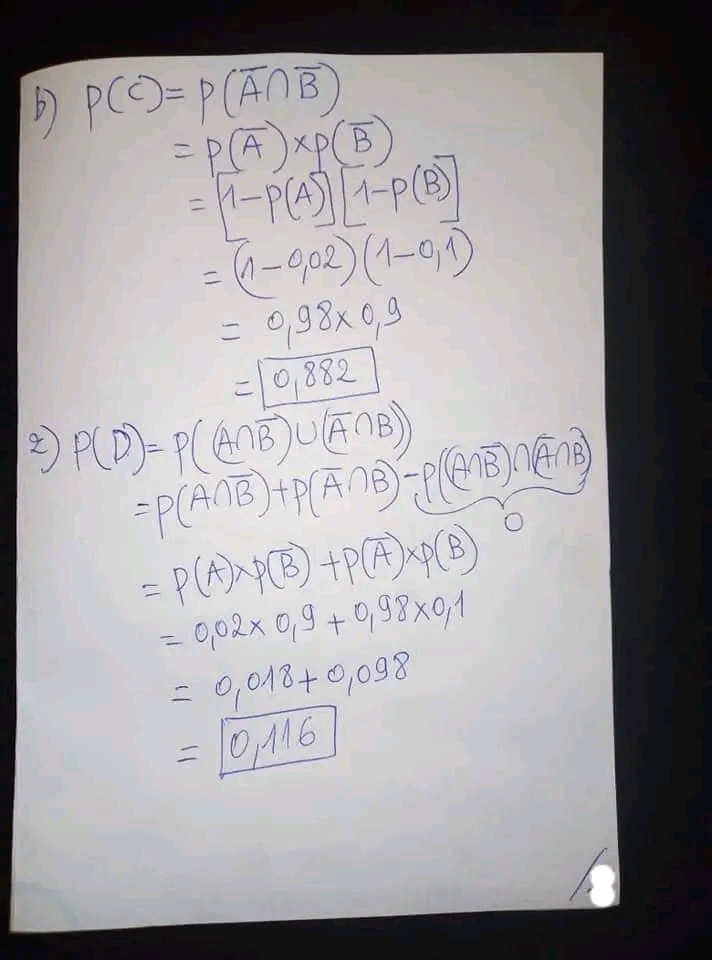 b) P(C) = P(A̅∩B̅)
= P(A̅) × P(B̅)
= [1-P(A)] [1-P(B)]
= (1-0,02)(1-0,1)
= 0,98 × 0,9
= 0,882
2) P(D) = P((A∩B̅)∪(A̅∩B))
= P(A∩B̅)+P(A̅∩B)-P((A∩B̅)∩(A̅∩B))
0
= P(A)×P(B̅)+P(A̅)×P(B)
= 0,02×0,9+0,98×0,1
= 0,018+0,098
= 0,116